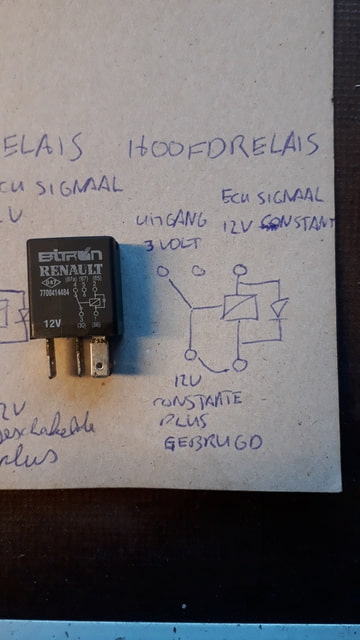 ELAIS HOOFDRELAIS
ECU SIGNAAL
V
ECU SIGNAAL
12V CONSTANT
UITGANG
3 VOLT
BITRON
RENAULT
7700414484
12V
12V
CONSTANTE
PLUS
GEBRUGD
2V
eschakelde
plus